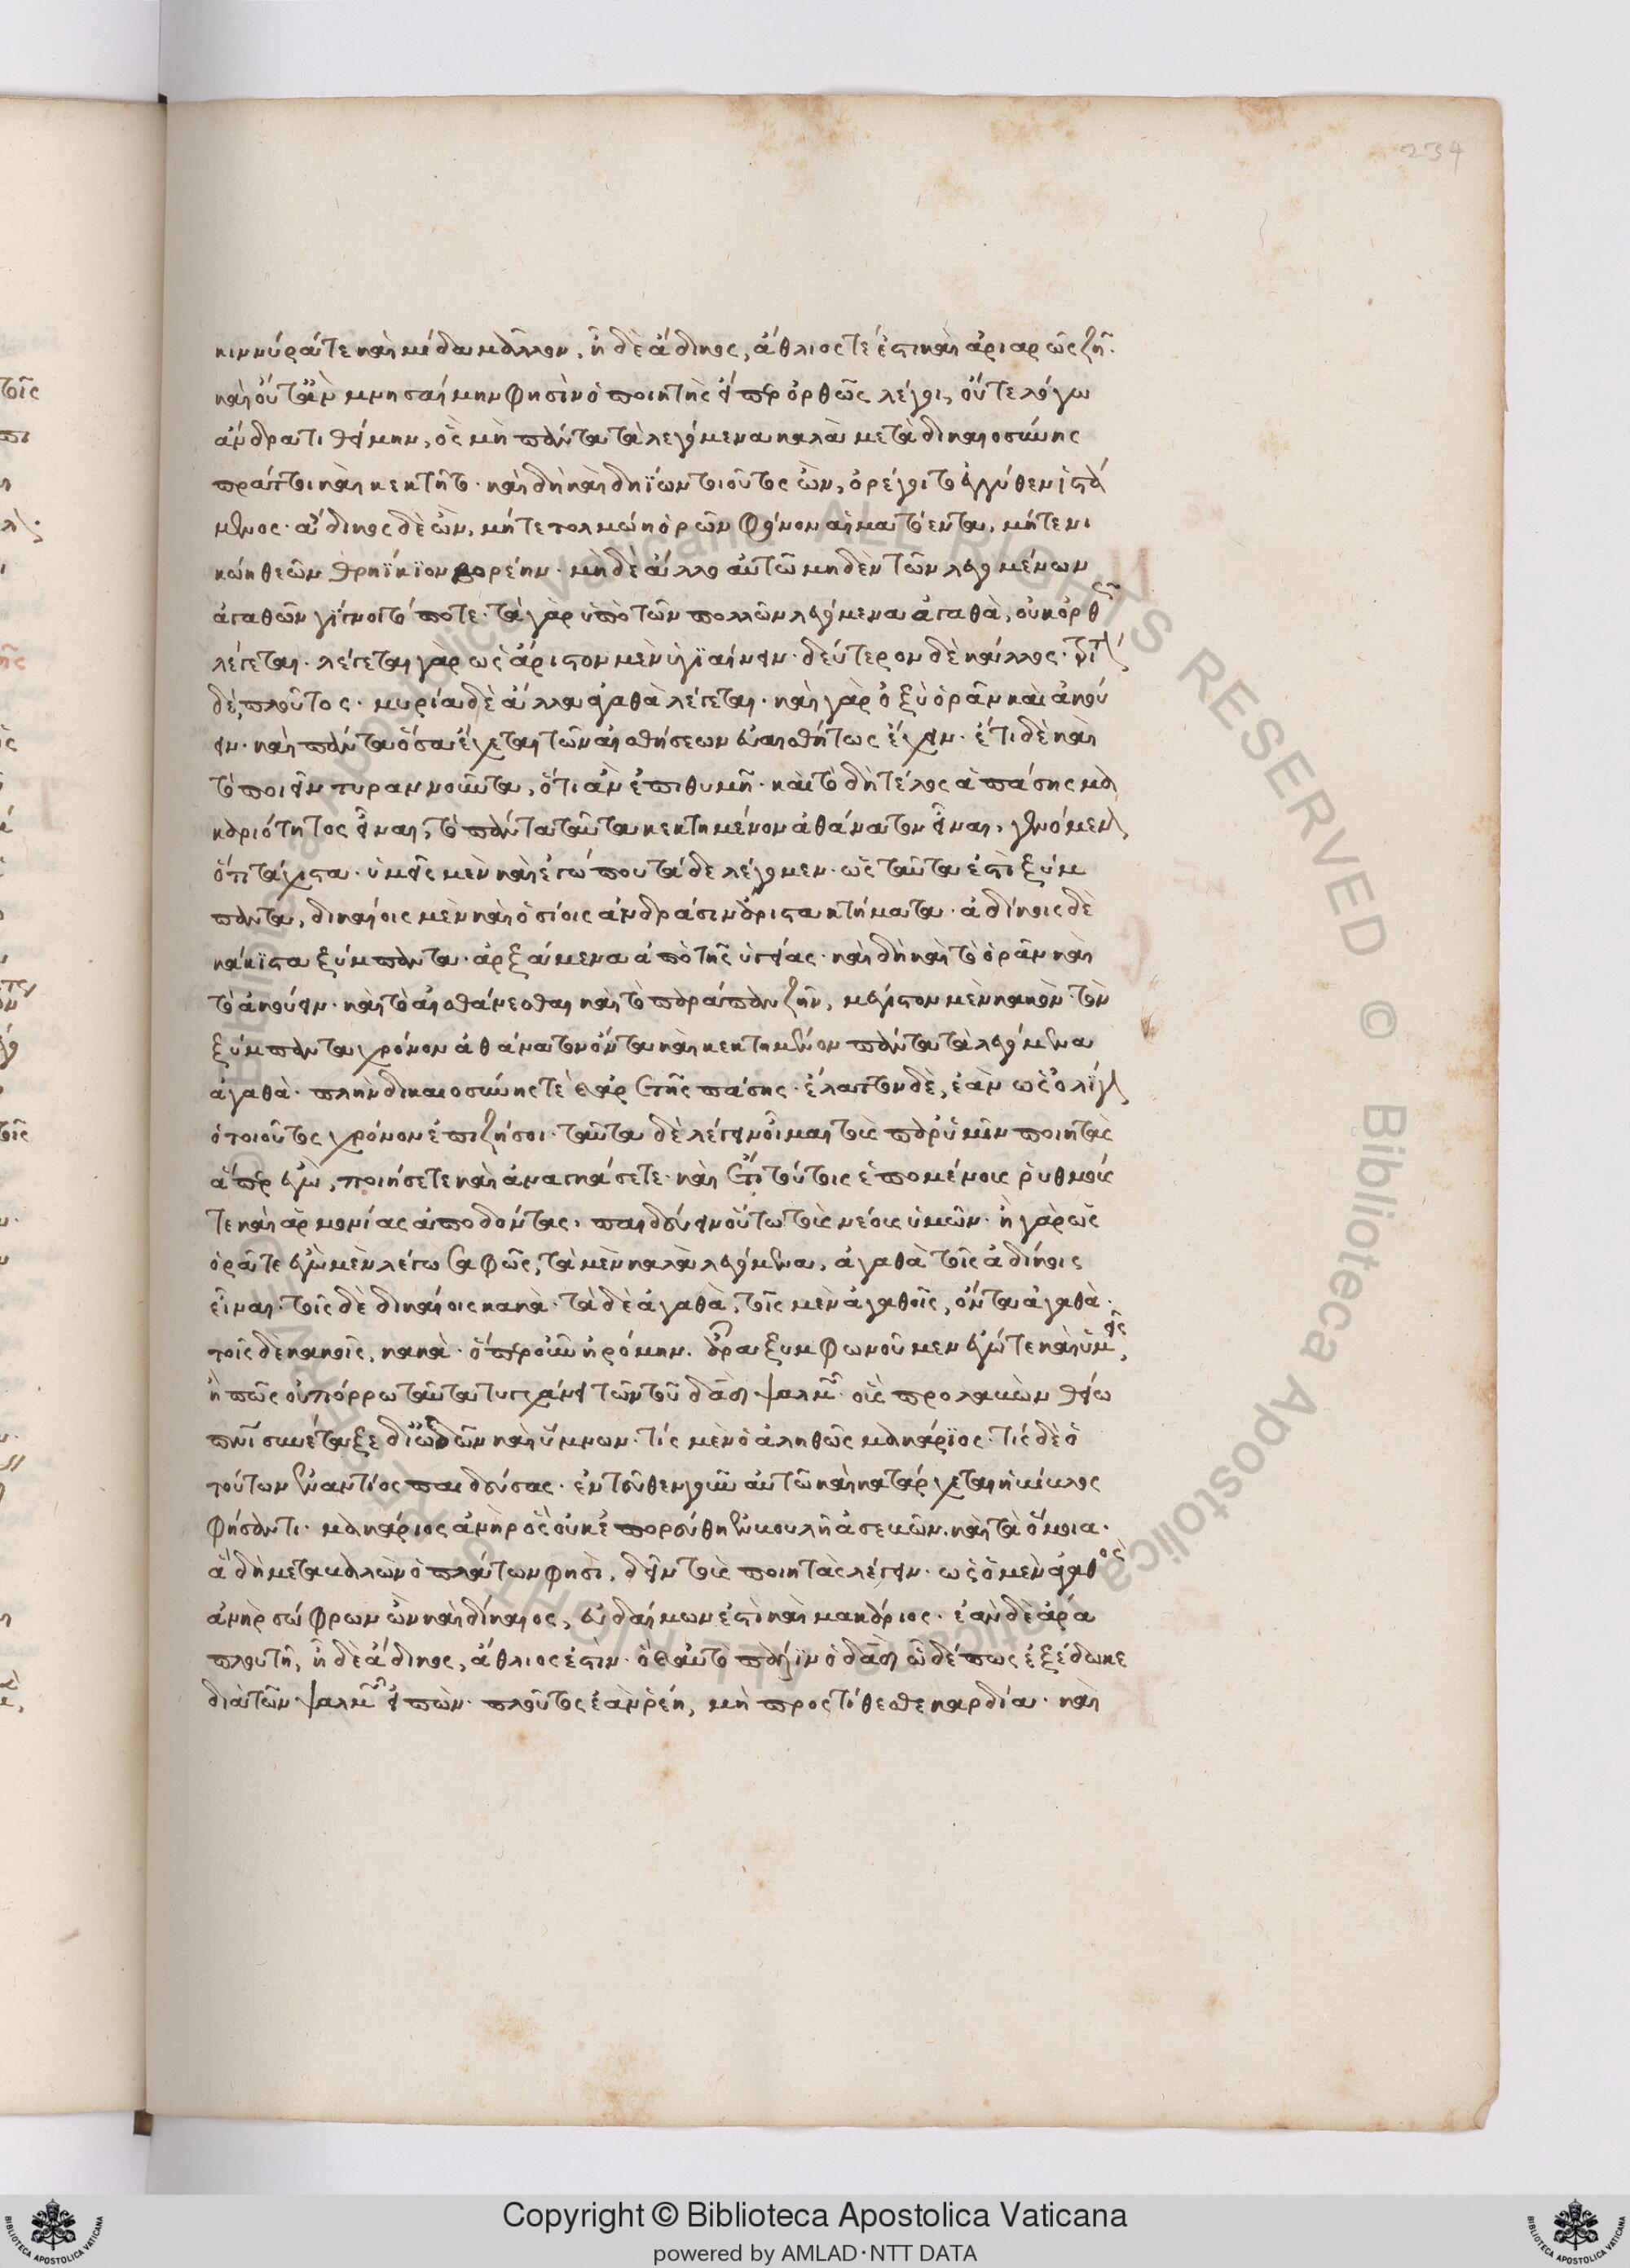 234
κιννύρα τε καὶ μίδα μᾶλλον, ἦ δὲ ἄδικος, ἄθλιός τέ ἐστι καὶ ἀνιαρῶς ζῇ.
καὶ οὔτ' ἂν μνησαίμην φησὶν ὁ ποιητὴς εἴπερ ὀρθῶς λέγει, οὔτε λόγω
ἄνδρα τιθείμην, ὃς μὴ πάντα τὰ λεγόμενα καλὰ μετὰ δικαιοσύνης
πράττοι καὶ κεκτῆτο· καὶ δὴ καὶ δηΐων τοιοῦτος ὢν, ὀρέγοιτο ἐγγύθεν ἱστά
μενος· ἄδικος δὲ ὢν, μήτε τολμώη ὁρῶν φόνον αἱματόεντα, μήτε νι
κώη θεῶν θρηΐκϊον βορέην· μὴ δὲ ἄλλο αὐτῶ μηδὲν τῶν λεγομένων
ἀγαθῶν γίγνοιτό ποτε· τὰ γὰρ ὑπὸ τῶν πολλῶν λεγόμενα ἀγαθὰ, οὐκ ὀρθῶς
λέγεται· λέγεται γὰρ ὡς ἄριστον μὲν ὑγϊαίνειν· δεύτερον δὲ κάλλος· τρίτον
δὲ, πλοῦτος· μυρία δὲ ἄλλα ἀγαθὰ λέγεται· καὶ γὰρ ὀξὺ ὁρᾶν καὶ ἀκού
ειν· καὶ πάντα ὅσα ἔχεται τῶν αἰσθήσεων εὐαισθήτως ἔχειν· ἔτι δὲ καὶ
τὸ ποιεῖν τυραννοῦντα, ὅτι ἂν ἐπιθυμῆ· καὶ τὸ δὴ τέλος ἁπάσης μα
καριότητος εἶναι, τὸ πάντα ταῦτα κεκτημένον ἀθάνατον εἶναι, γενόμενον
ὅτι τάχιστα· ὑμεῖς μὲν καὶ ἐγώ που τάδε λέγομεν· ὡς ταῦτα ἐστὶ ξύμ
παντα, δικαίοις μὲν καὶ ὁσίοις ἀνδράσιν ἄριστα κτήματα· ἀδίκοις δὲ
κάκϊστα ξύμπαντα· ἀρξάμενα ἀπὸ τῆς ὑγείας· καὶ δὴ καὶ τὸ ὁρᾶν καὶ
τὸ ἀκούειν· καὶ τὸ αἰσθάνεσθαι καὶ τὸ παράπαν ζῆν, μέγιστον μὲν κακὸν· τὸν
ξύμπαντα χρόνον ἀθάνατον ὄντα καὶ κεκτημένον πάντα τὰ λεγόμενα
ἀγαθὰ· πλὴν δικαιοσύνης τὲ καὶ ἀρετῆς πάσης· ἔλαττον δὲ, ἐὰν ὡς ὀλίγϊστον
ὁ τοιοῦτος χρόνον ἐπιζήσοι· ταῦτα δὲ λέγειν οἶμαι τοὺς παρ' ὑμῖν ποιητὰς
ἅπερ ἐγὼ, ποιήσετε καὶ ἀναγκάσετε· καὶ ἔτι τούτοις ἑπομένοις ῥυθμούς
τε καὶ ἁρμονίας ἀποδόντας, παιδεύειν οὕτω τοὺς νέους ὑμῶν· ἢ γὰρ ὡς
ὁρᾶτε ἐγὼ μὲν λέγω σαφῶς, τὰ μὲν κακὰ λεγόμενα, ἀγαθὰ τοῖς ἀδίκοις
εἶναι· τοῖς δὲ δικαίοις κακὰ· τὰ δὲ ἀγαθὰ, τοῖς μὲν ἀγαθοῖς, ὄντα ἀγαθὰ·
τοῖς δὲ κακοῖς, κακὰ· ὅπερ οὖν ἠρόμην. ἆρα ξυμφωνοῦμεν ἐγώ τε καὶ ὑμεῖς,
ἢ πῶς οὐ πόρρω ταῦτα τυγχάνει τῶν τοῦ δαδ ψαλμῶν· οὓς προλαβὼν θείω
πνι συνέταξε δι' ὠδῶν καὶ ὕμνων· τίς μὲν ὁ ἀληθῶς μακάρϊος· τίς δὲ ὁ
τούτων ἐναντίος παιδεύσας· ἐντεῦθεν γοῦν αὐτῶ καὶ κατάρχεται ἡ βίβλος
φήσαντι· μακάριος ἀνὴρ ὃς οὐκ ἐπορεύθη ἐν βουλῆ ἀσεβῶν. καὶ τὰ ὅμοια·
ἃ δὴ μεταβαλὼν ὁ πλάτων φησὶ, δεῖν τοὺς ποιητὰς λέγειν· ὡς ὁ μὲν ἀγαθὸς
ἀνὴρ σώφρων ὢν καὶ δίκαιος, εὐδαίμων ἐστὶ καὶ μακάριος· ἐὰν δὲ ἄρα
πλουτῆ, ἦ δὲ ἄδικος, ἄθλιός ἐστιν· ὃ καὶ αὐτὸ πάλϊν ὁ δαδ ὧδέ πως ἐξέδωκε
διὰ τῶν ψαλμῶν εἰπὼν· πλοῦτος ἐὰν ῥέη, μὴ προστίθεσθε καρδίαν· καὶ
Copyright © Biblioteca Apostolica Vaticana
powered by AMLAD·NTT DATA